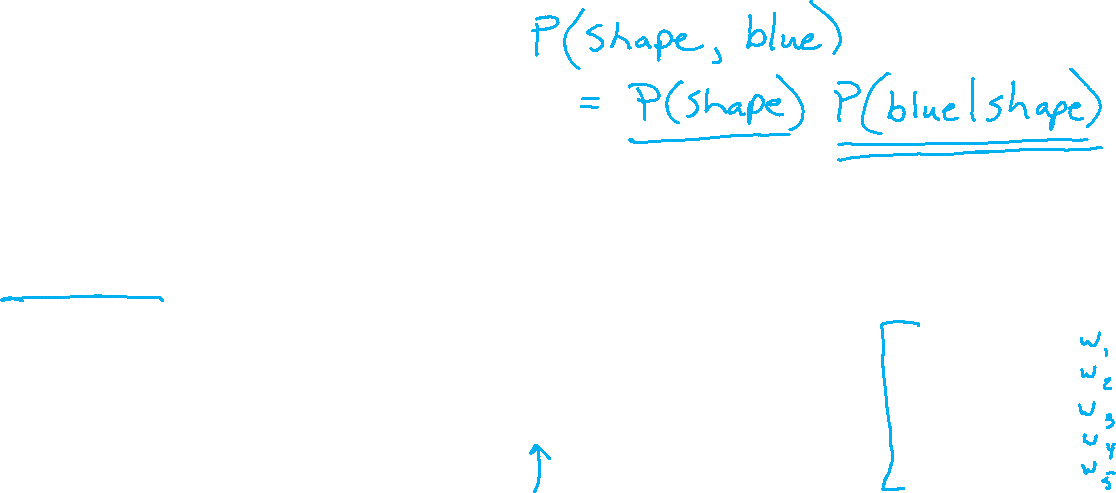 P(shape, blue)
= P(shape) P(blue|shape)
w1
w2
w3
w4
w5